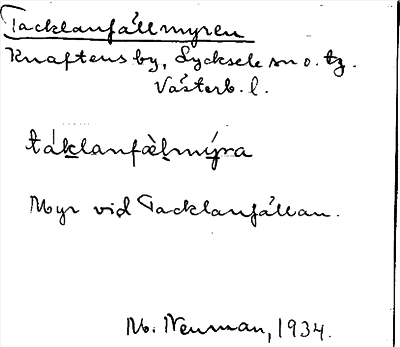 Tacklanfällmyren
Knaftens by, Lycksele sn o. tg.
Västerb. l.
táklanfæ̀lmýra
Myr vid Tacklanfällan.
M. Neuman, 1934.